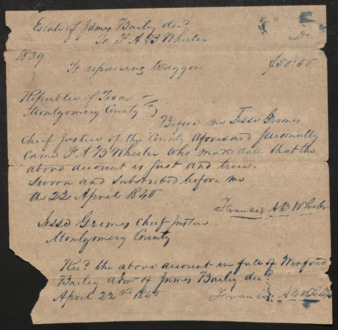 Estate of James Baily decd
To F. A. B. Wheeler Dr
1839
To repairing Waggon $50.50
Republic of Texas
Montgomery County
Before me Jesse Grimes
Chief Justice of the County aforesaid personally
came F A B Wheeler who made oath that the
above account is just and true.
Sworn and subscribed before me
this 22 April 1840
Francis A B Wheeler
Jesse Grimes Chief Justice
Montgomery County
Recd the above account in full of Winford
Baily admr of James Baily decd
April 22nd 1840
Francis A B Wheeler